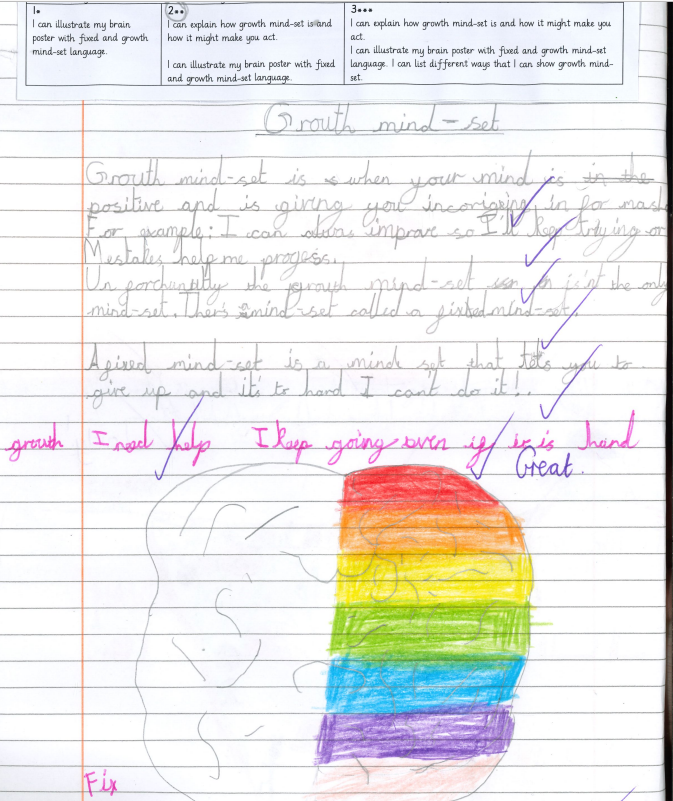 1.
I can illustrate my brain
poster with fixed and growth
mind-set language.
2..
I can explain how growth mind-set is and
how it might make you act.
I can illustrate my brain poster with fixed
and growth mind-set language.
3...
I can explain how growth mind-set is and how it might make you
act.
I can illustrate my brain poster with fixed and growth mind-set
language. I can list different ways that I can show growth mind-
set.
Grouth mind-set
Grouth mind-set is when your mind is in the
positive and is giving you in for
For example: I can improve so I'll keep trying or
Mestakes help me progess.
Un the grouth mind-set is'nt the only
mind-set. Thers mind-set called a mind-set.
A mind-set is a mind set that you to
give up and it's to hard I cant do it!.
growth I need help I keep going even if it is hard
Great.
Fix